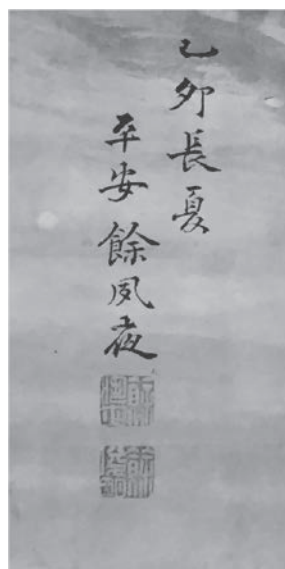 乙卯長夏
平安餘夙夜